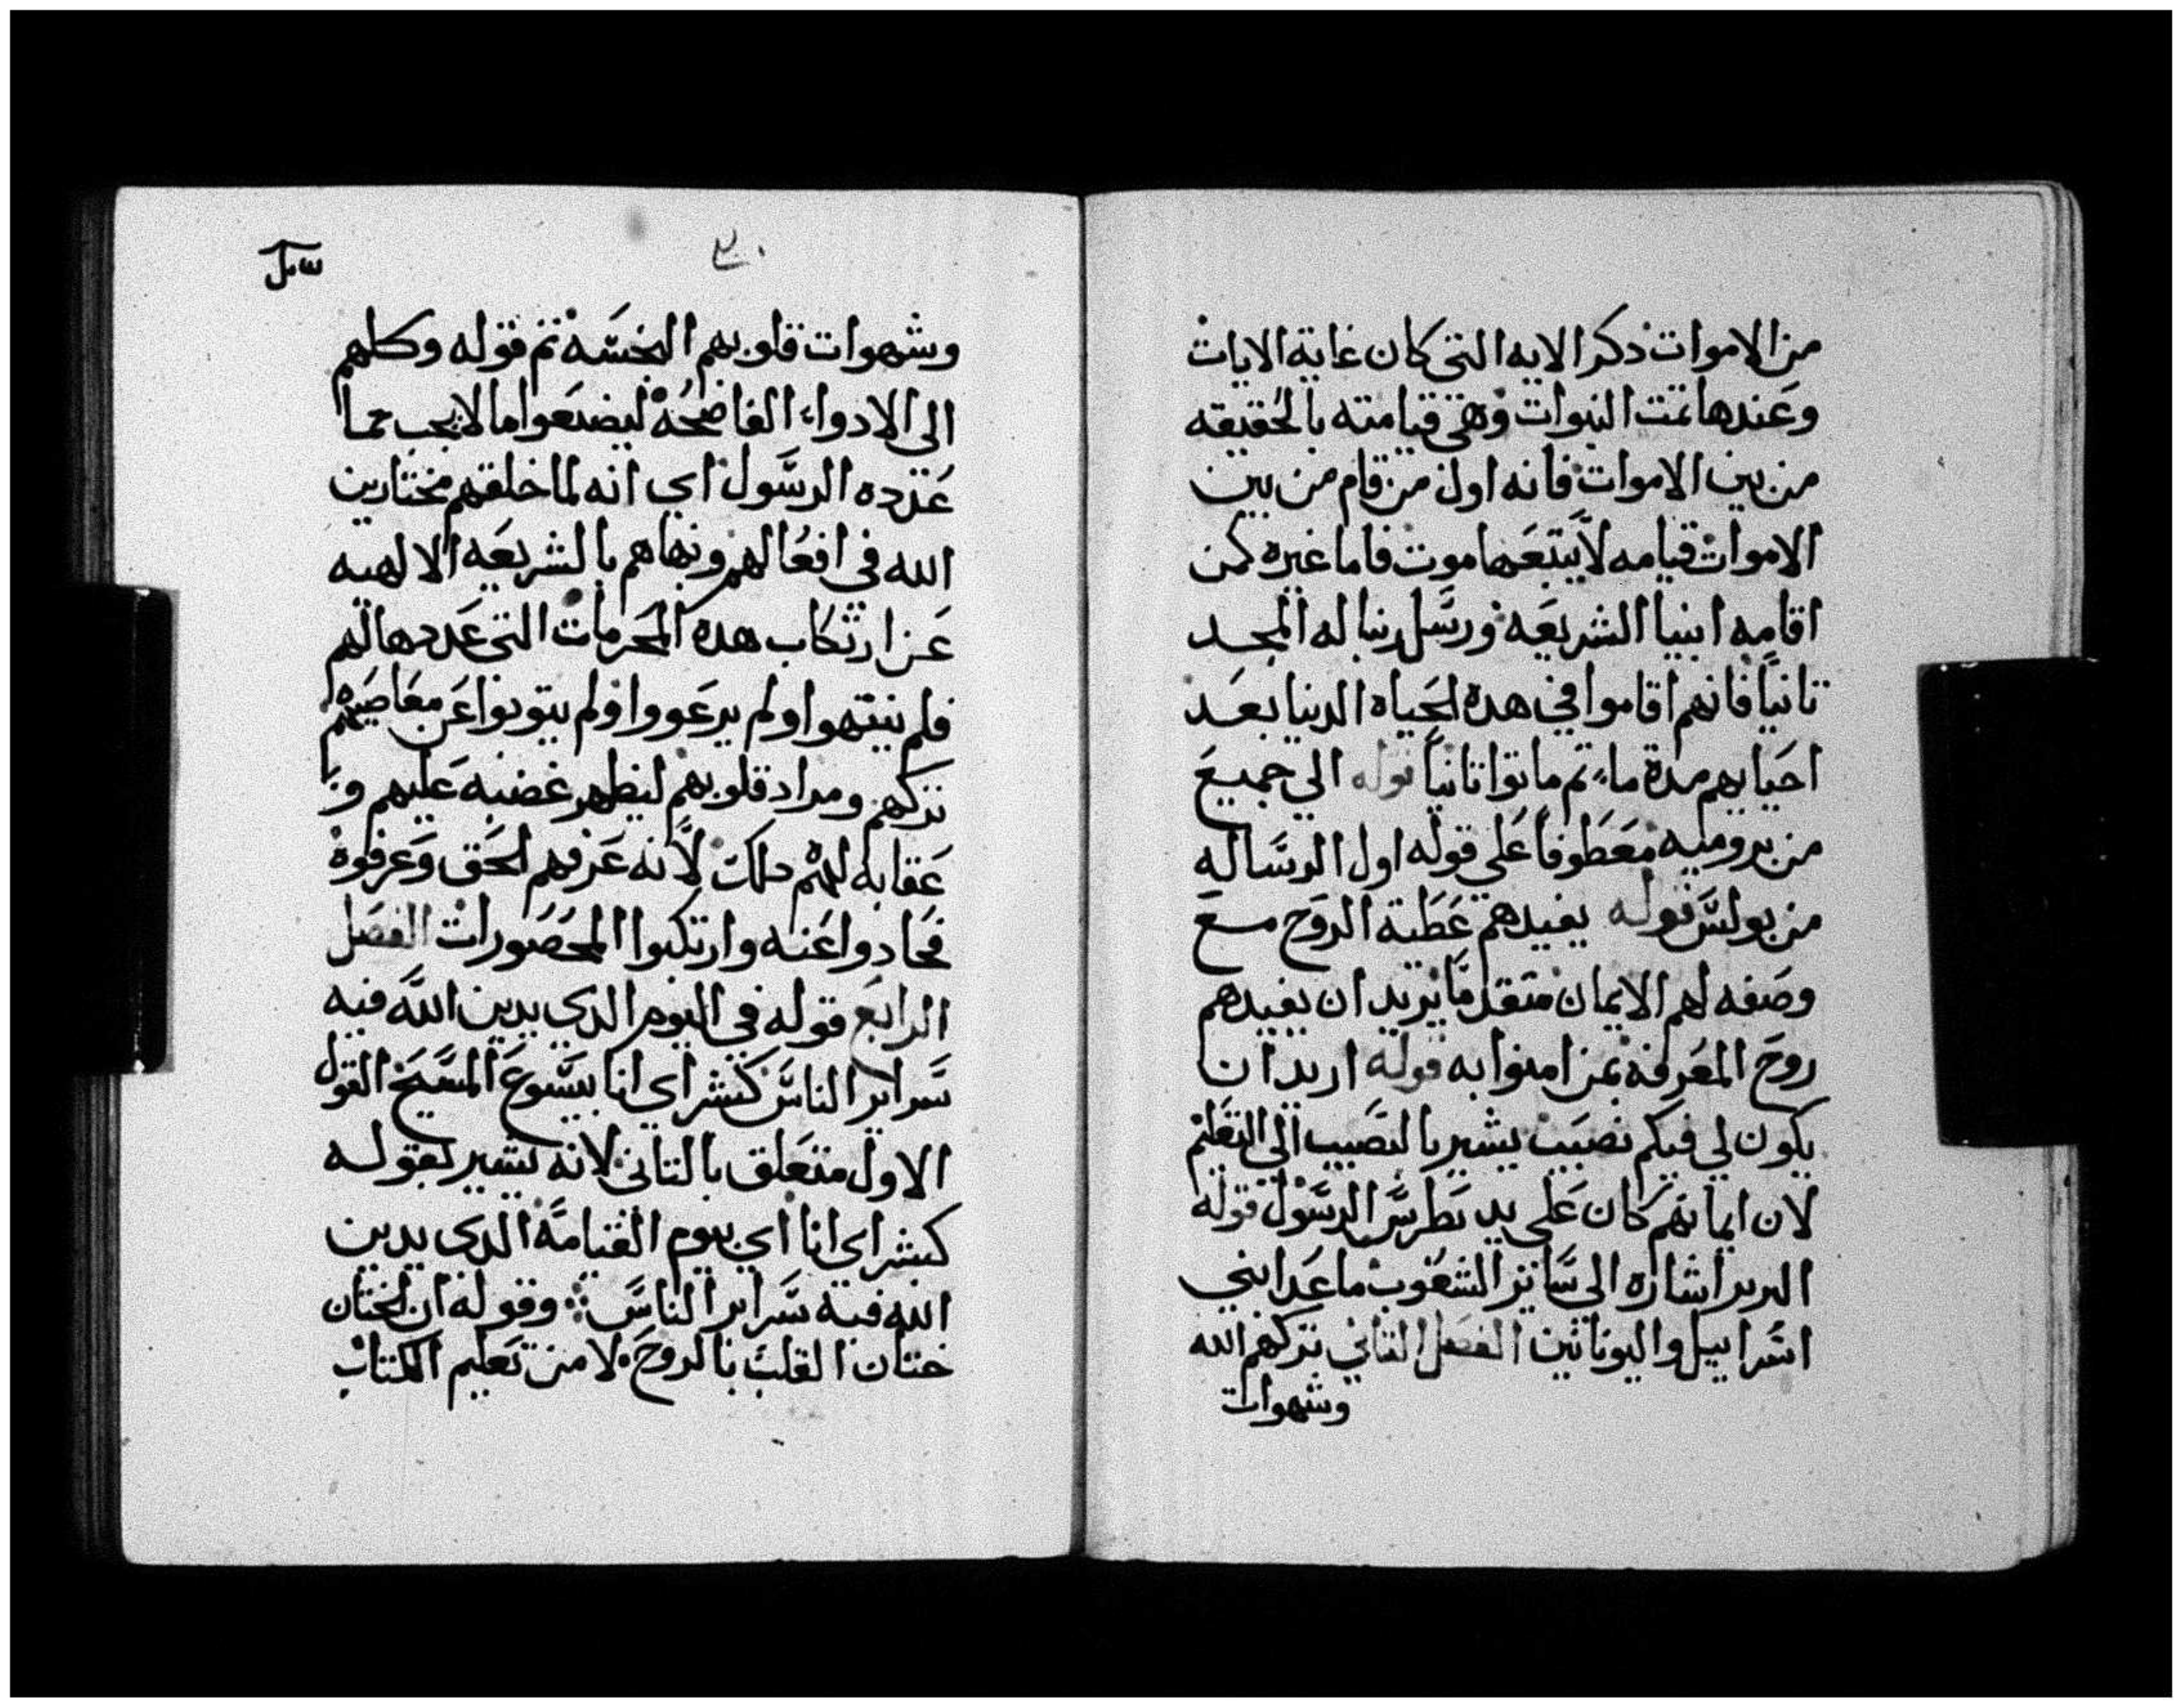 من الاموات ذكر الايه التي كان غاية الايات
وعندها تمت النبوات وهي قيامته بالحقيقه
من بين الاموات فانه اول من قام من بين
الاموات قيامه لا يتبعها موت فاما غيره كمن
اقامه انبيا الشريعه ورسل ربنا له المجد
تانياً فانهم اقاموا في هده الحياه الدنيا بعد
احيايهم مدة ما، تم ماتوا تانياً قوله الي جميع
من برومية معطوفاً على قوله اول الرساله
من بولس قوله يفيدهم عطية الروح مع
وصفه لهم الايمان متقدماً يريد ان يفيدهم
روح المعرفة بمن امنوا به قوله اريد ان
يكون لي فيكم نصيب يشير بالنصيب الي التعليم
لان ايمانهم كان على يد بطرس الرسول قوله
البربر اشاره الى سائر الشعوب ما عدا بني
اسراييل واليونانين الفصل التاني تركهم الله
وشهوات
٣٠
وشهوات قلوبهم النجسه تم قوله وكلهم
الى الادواء الفاضحة ليصنعوا ما لا يجب مما
عدده الرسول اي انه لما خلقهم مختارين
الله في افعالهم ونهاهم بالشريعه الالهيه
عن ارتكاب هده المحرمات التي عددها لهم
فلم ينتهوا ولم يرعووا ولم يتوبوا عن معاصيهم
تركهم ومراد قلوبهم ليظهر غضبه عليهم و
عقابه لهم لانه عرفهم الحق وعرفوه
فحادوا عنه وارتكبوا المحصورات الفصل
الرابع قوله في اليوم الدي يدين الله فيه
سراير الناس كبشراي انا بيسوع المسيح القول
الاول متعلق بالتاني لانه يشير بقوله
كبشراي انا اي بيوم القيامة الدي يدين
الله فيه سراير الناس وقوله ان الختان
ختان القلب بالروح لا من تعليم الكتاب